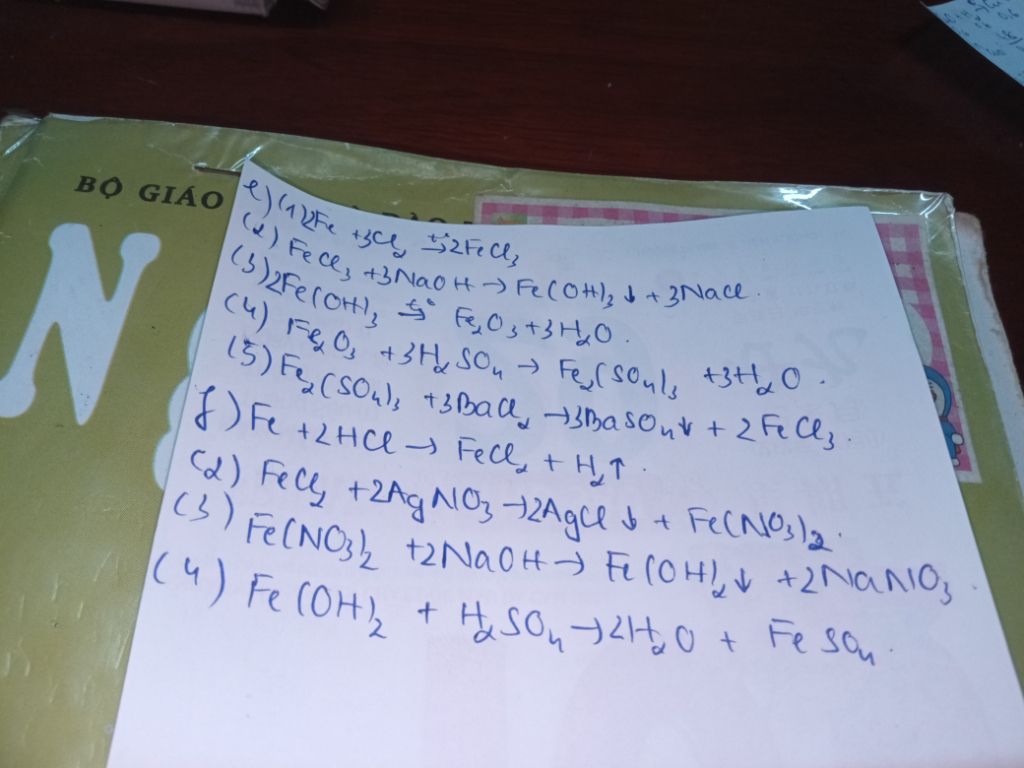 BỘ GIÁO
N
e) (1) 2Fe + 3Cl₂ →(t°) 2FeCl₃
(2) FeCl₃ + 3NaOH → Fe(OH)₃ ↓ + 3NaCl.
(3) 2Fe(OH)₃ →(t°) Fe₂O₃ + 3H₂O.
(4) Fe₂O₃ + 3H₂SO₄ → Fe₂(SO₄)₃ + 3H₂O.
(5) Fe₂(SO₄)₃ + 3BaCl₂ → 3BaSO₄↓ + 2FeCl₃.
f) Fe + 2HCl → FeCl₂ + H₂↑.
(2) FeCl₂ + 2AgNO₃ → 2AgCl ↓ + Fe(NO₃)₂.
(3) Fe(NO₃)₂ + 2NaOH → Fe(OH)₂↓ + 2NaNO₃.
(4) Fe(OH)₂ + H₂SO₄ → 2H₂O + FeSO₄.